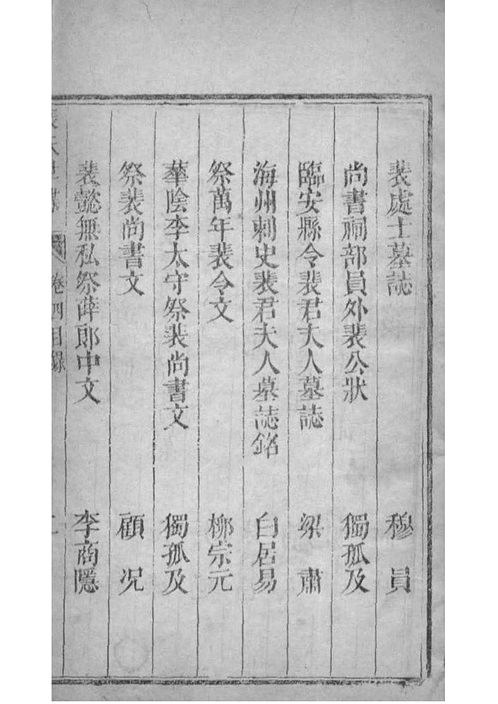 裴處士墓誌 穆員
尚書祠部員外裴公狀 獨孤及
臨安縣令裴君夫人墓誌 梁肅
海州刺史裴君夫人墓誌銘 白居易
祭萬年裴令文 柳宗元
華陰李太守祭裴尚書文 獨孤及
祭裴尚書文 顧况
裴懿無私祭薛郎中文 李商隱
卷四目錄